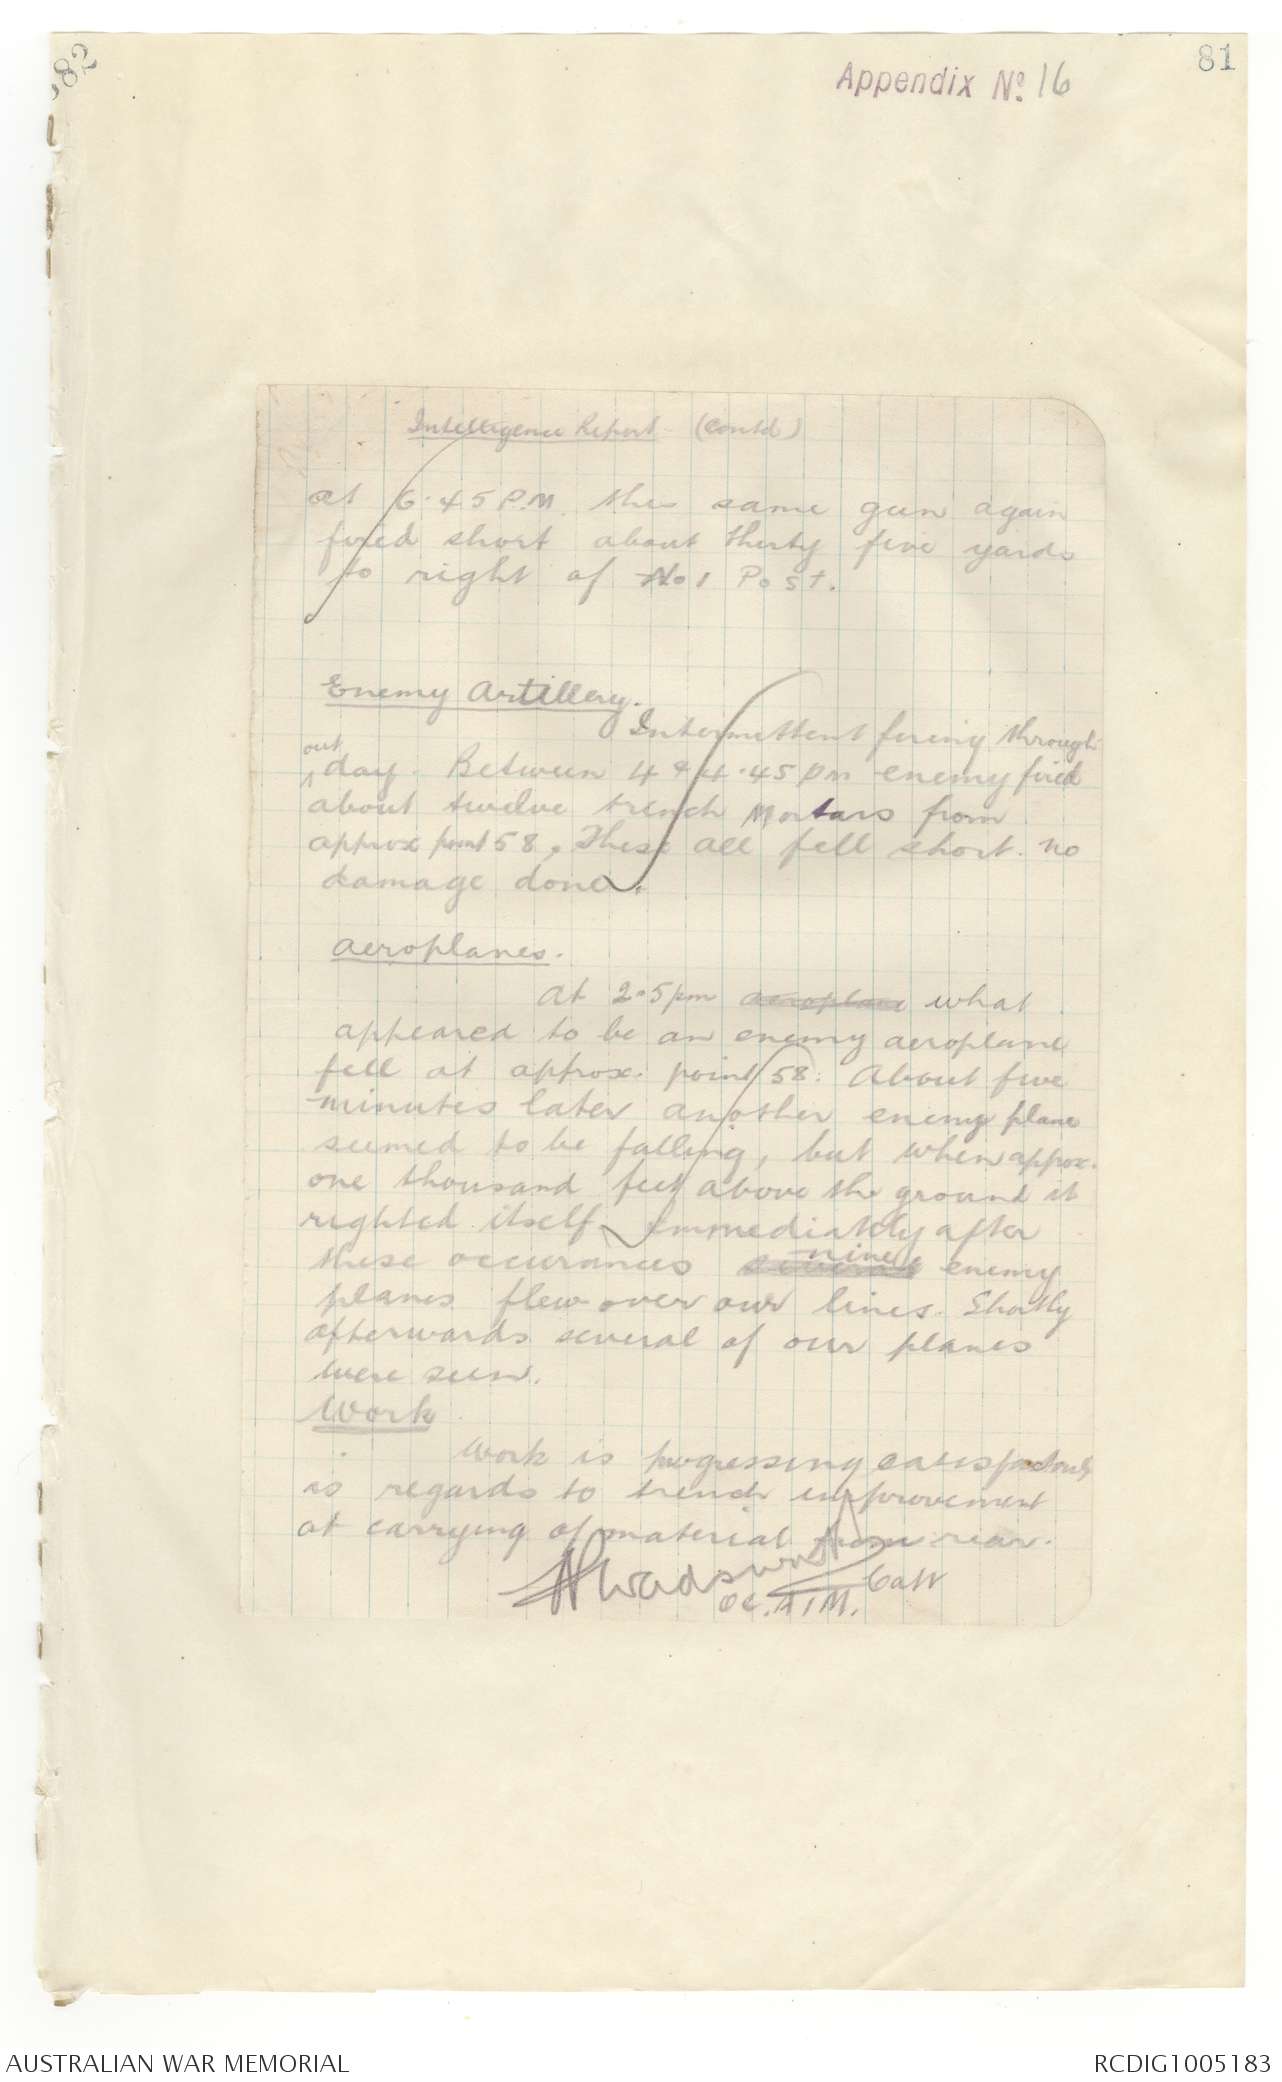 82
81
Appendix No. 16
Intelligence Report (Contd)
at 6.45 P.M. the same gun again
fired short about thirty five yards
to right of No 1 Post.
Enemy Artillery.
Intermittent firing through
out
day. Between 4 & 4.45 pm enemy fired
about twelve trench Mortars from
approx point 58. These all fell short. no
damage done.
Aeroplanes.
At 2.5pm aeroplane what
appeared to be an enemy aeroplane
fell at approx. point 58. About five
minutes later another enemy plane
seemed to be falling, but when approx.
one thousand feet above the ground it
righted itself. Immediately after
nine
these occurances several enemy
planes flew over our lines. Shortly
afterwards several of our planes
were seen.
Work
Work is progressing satisfactorily
as regards to trench improvement
at carrying of material from rear.
Wadsworth Capt
OC.
AUSTRALIAN WAR MEMORIAL
RCDIG1005183